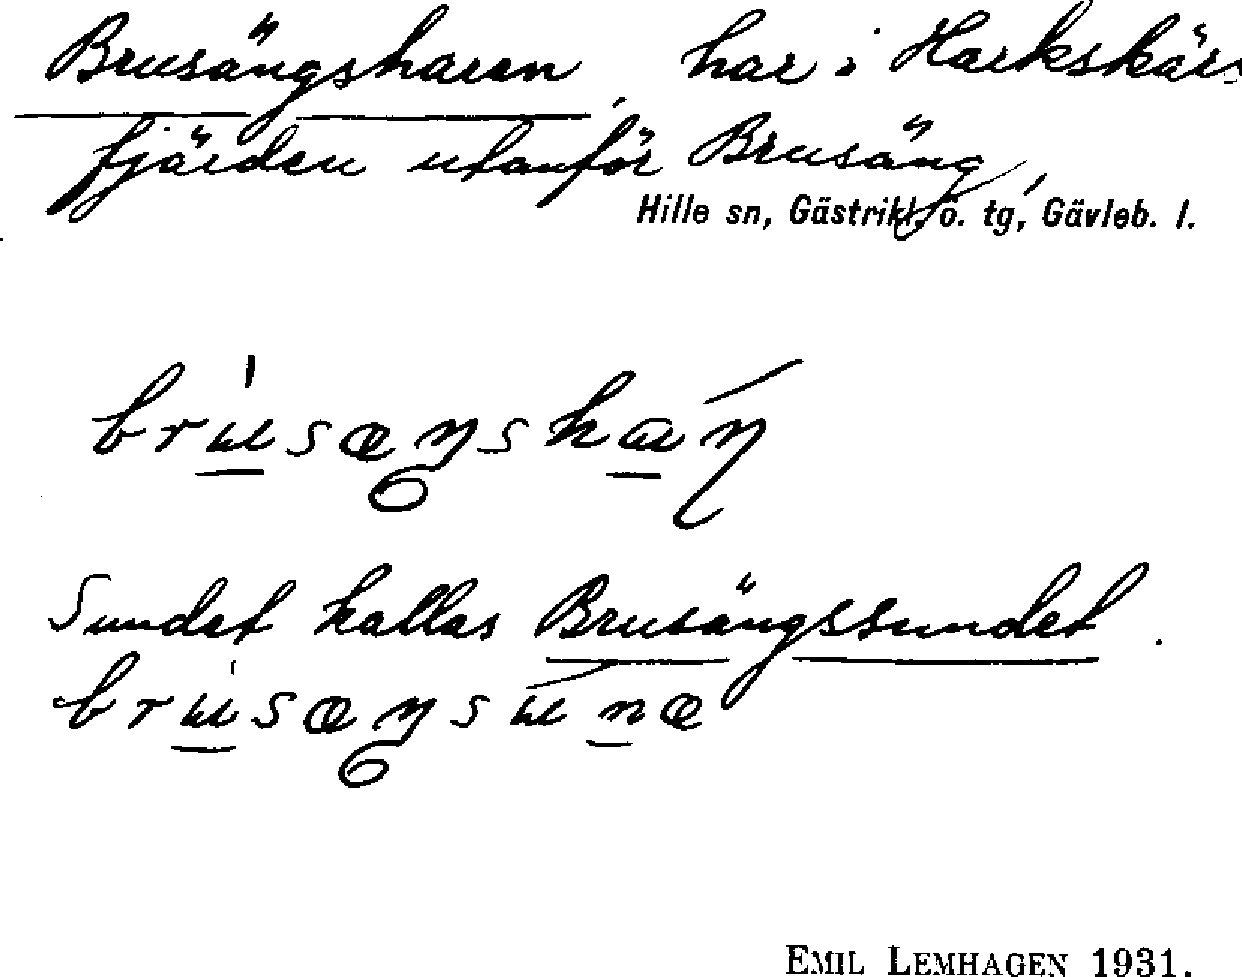 Brusängsharen, har i Harkskärs-
fjärden utanför Brusäng,
Hille sn, Gästrikl. ö. tg, Gävleb. l.
Sundet kallas Brusängssundet.
EMIL LEMHAGEN 1931.